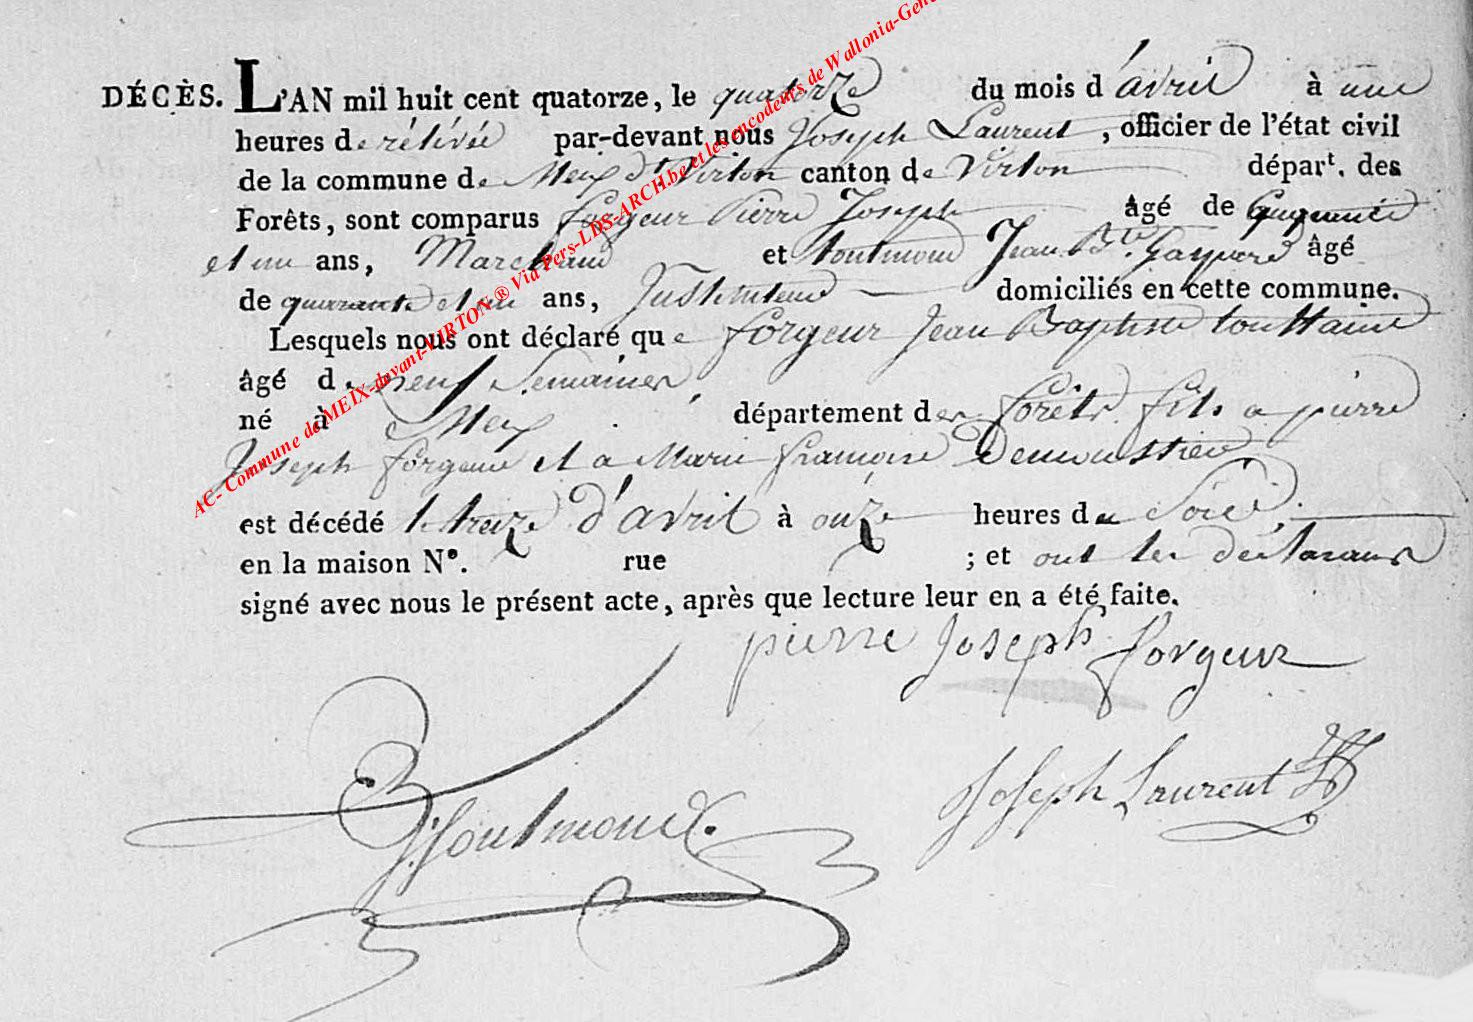 DÉCÈS. L'AN mil huit cent quatorze, le quatorze du mois d'avril à une
heures de rélévée par-devant nous Joseph Laurent, officier de l'état civil
de la commune de Meix dt Virton canton de Virton départ. des
Forêts, sont comparus forgeur Pierre Joseph âgé de Cinquante
et un ans, Marchand et toutmond Jean Bte Gaspard âgé
de quarante et un ans, Instituteur domiciliés en cette commune.
Lesquels nous ont déclaré que forgeur Jean Baptiste toussaine
âgé de neuf Semaines,
né à Meix département des forêts fils a pierre
Joseph forgeur et a Marie françoise
est décédé le treize d'avril à onze heures du Soire,
en la maison No. rue ; et ont les déclarans
signé avec nous le présent acte, après que lecture leur en a été faite.
pierre Joseph forgeur
Joseph Laurent
J. toutmond.
AC- Commune de MEIX-devant-VIRTON ® Via Pers-LDS-ARCH.be et les encodeurs de Wallonia-Gen